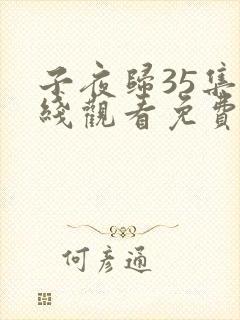 子夜歸35集
綫觀看免費
何彥通